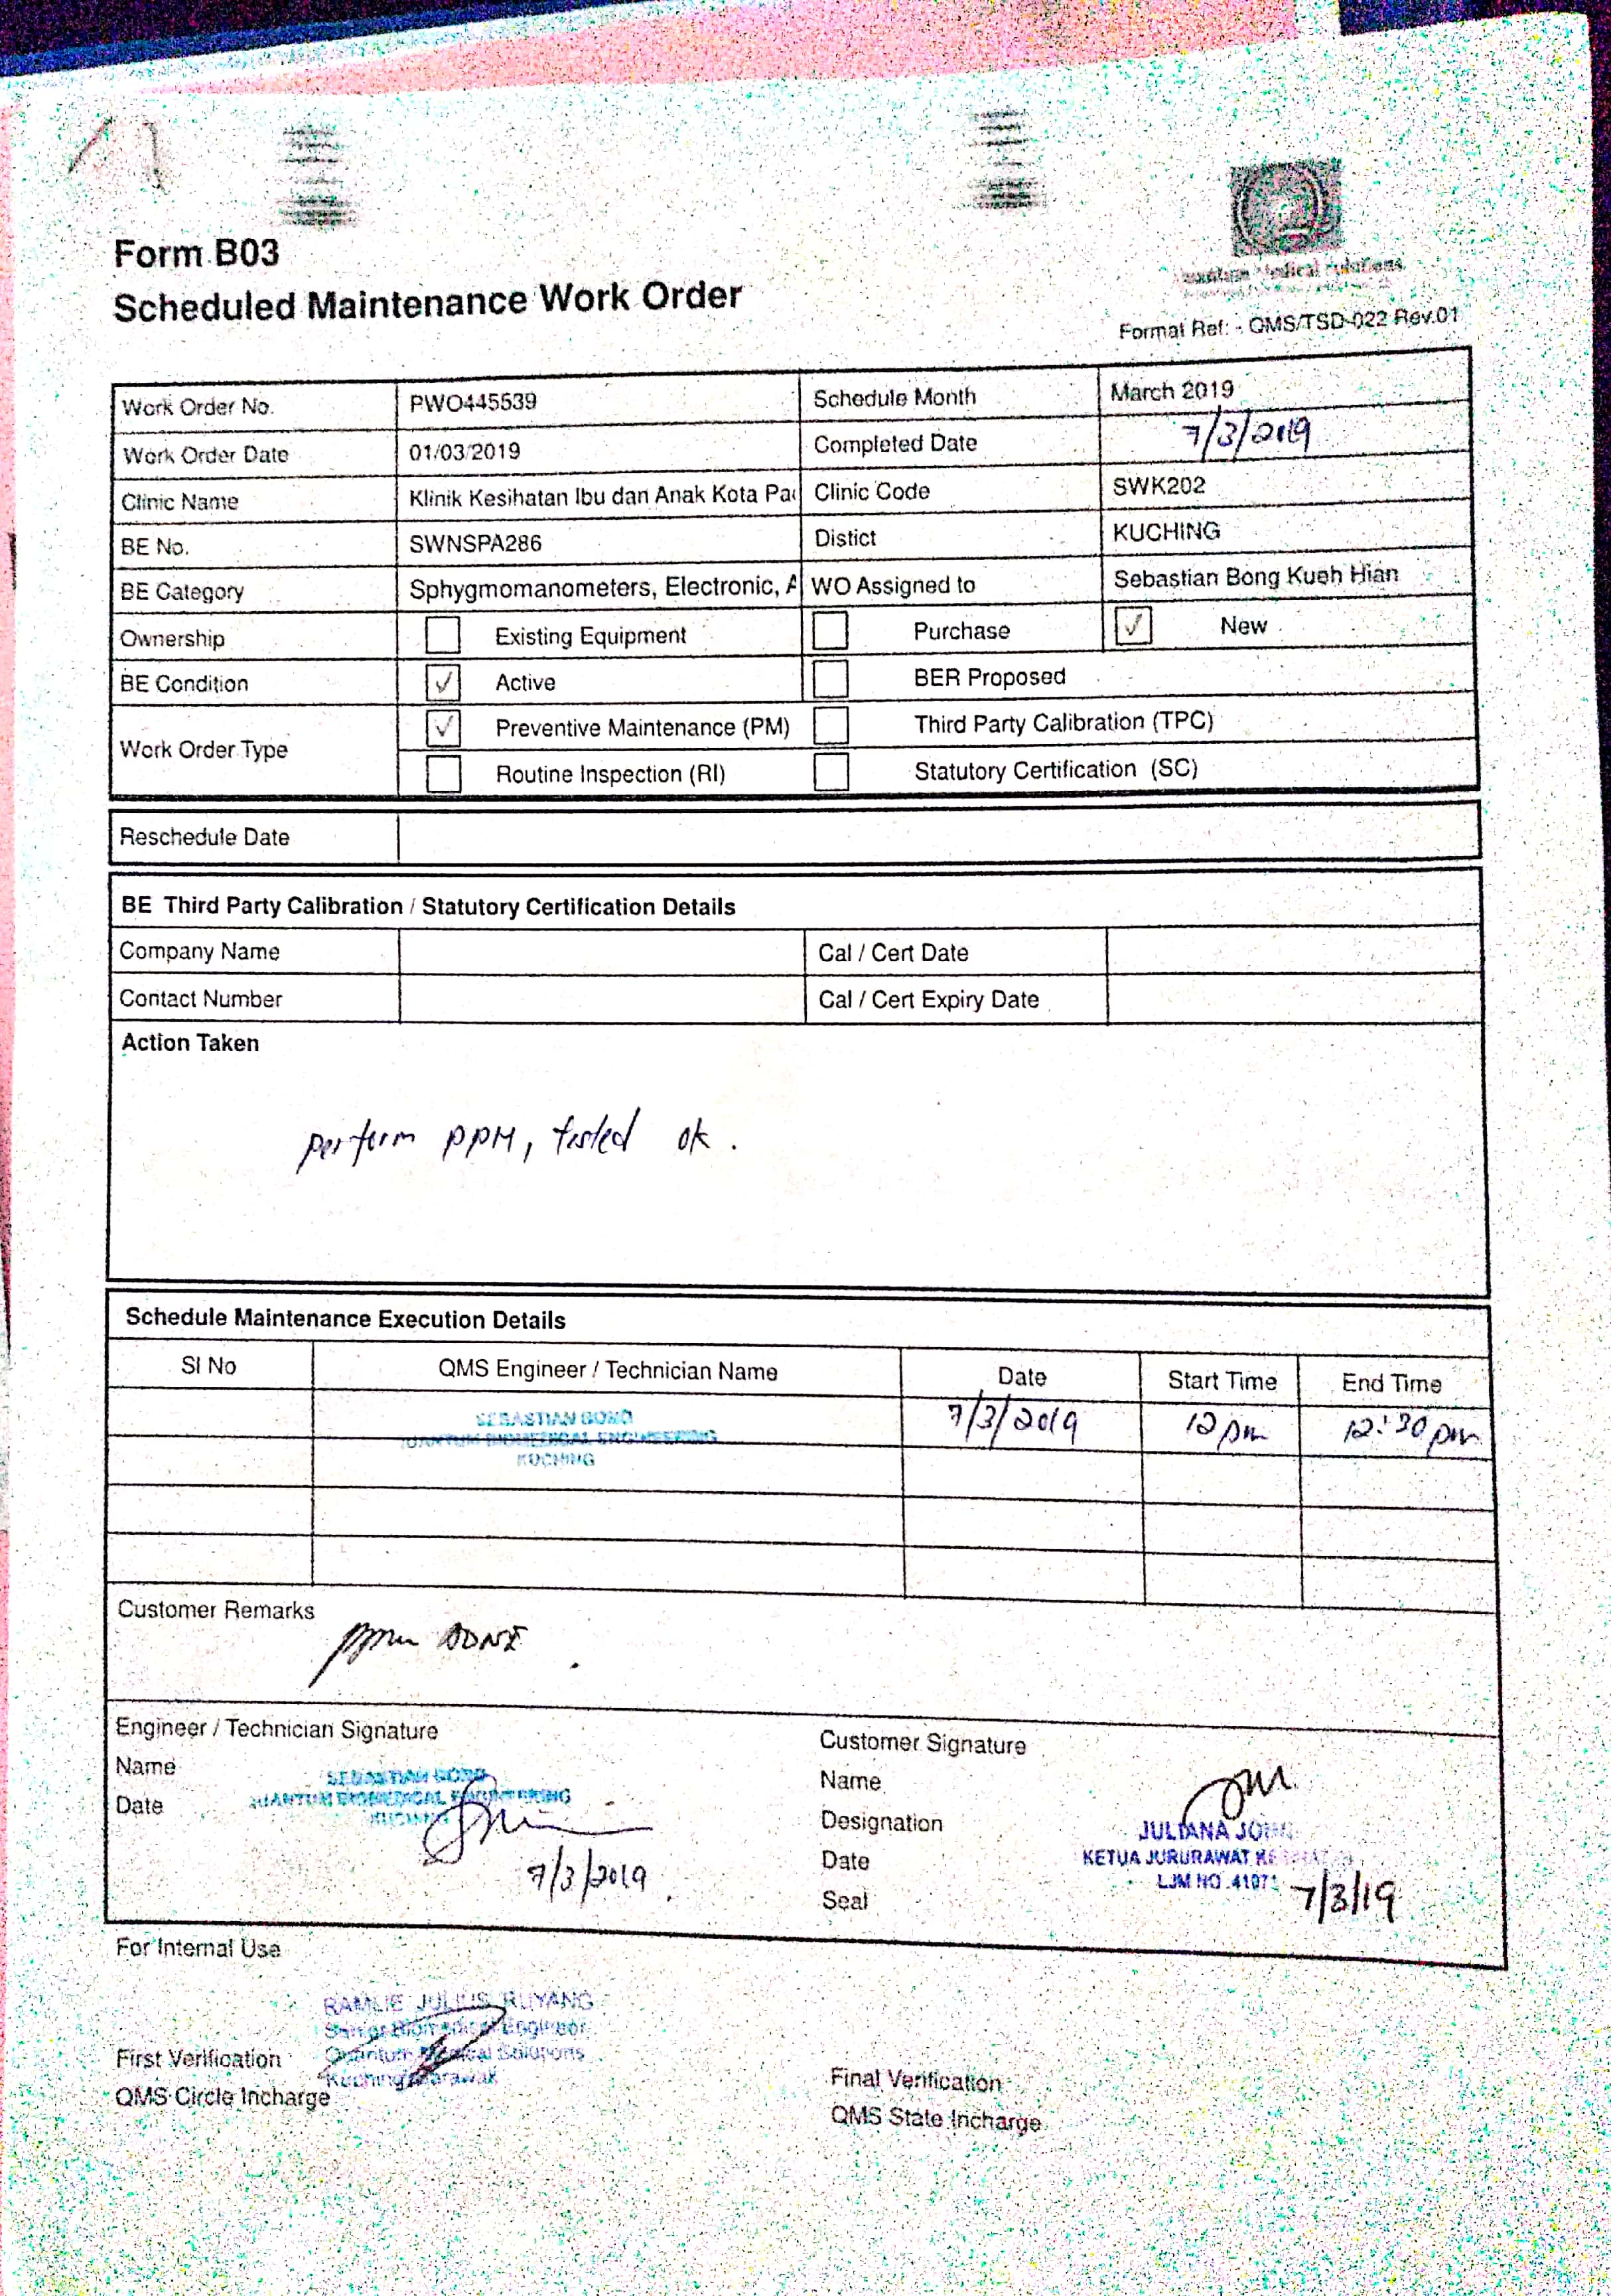 Form B03
Scheduled Maintenance Work Order
Medical Solutions
Format Ref: - QMS/TSD-022 Rev.01
Work Order No. PWO445539 Schedule Month March 2019
Work Order Date 01/03/2019 Completed Date 7/3/2019
Clinic Name Klinik Kesihatan Ibu dan Anak Kota Pa Clinic Code SWK202
BE No. SWNSPA286 Distict KUCHING
BE Category Sphygmomanometers, Electronic, A WO Assigned to Sebastian Bong Kueh Hian
Ownership Existing Equipment Purchase ✓ New
BE Condition ✓ Active BER Proposed
Work Order Type ✓ Preventive Maintenance (PM) Third Party Calibration (TPC)
Routine Inspection (RI) Statutory Certification (SC)
Reschedule Date
BE Third Party Calibration / Statutory Certification Details
Company Name Cal / Cert Date
Contact Number Cal / Cert Expiry Date
Action Taken
perform PPM, tested ok.
Schedule Maintenance Execution Details
SI No QMS Engineer / Technician Name Date Start Time End Time
SEBASTIAN BONG 7/3/2019 12 pm 12:30 pm
QUANTUM BIOMEDICAL ENGINEERING
KUCHING
Customer Remarks
ppm DONE.
Engineer / Technician Signature Customer Signature
Name Name
Date Designation
Date
Seal
SEBASTIAN BONG
QUANTUM BIOMEDICAL ENGINEERING
KUCHING
7/3/2019.
JULIANA
KETUA JURURAWAT
LJM NO.41071
7/3/19
For Internal Use
RAMLIE JULIUS RUYANG
Senior Biomedical Engineer
Quantum Medical Solutions
Kuching Sarawak
First Verification Final Verification
QMS Circle Incharge QMS State Incharge